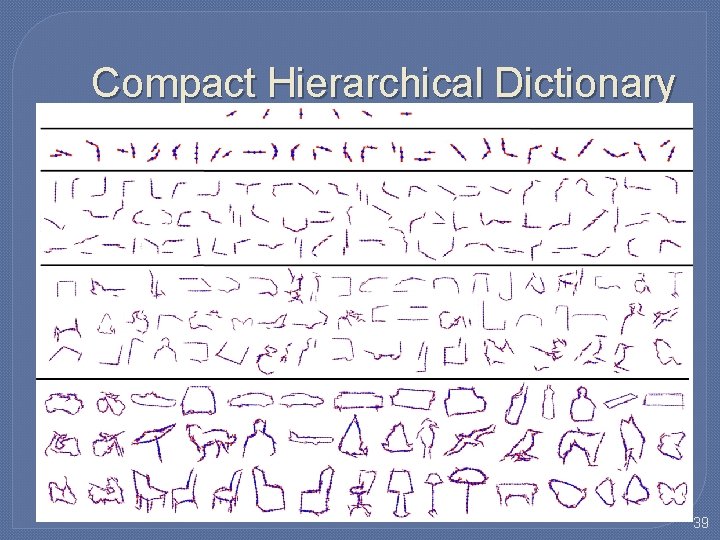 Compact Hierarchical Dictionary
39